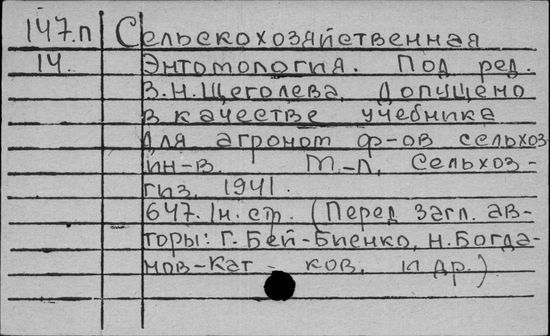 147.п Сельскохозяйственная
14. Энтомология. Под ред.
В.Н.Щеголева. Допущено
в качестве учебника
для агроном ф-ов сельхоз
ин-в. М.-Л, Сельхоз-
гиз. 1941.
647. 1н. стр. (Перед загл. ав-
торы: Г. Бей-Биенко, Н.Богда-
нов-Кат - ков. и др.)